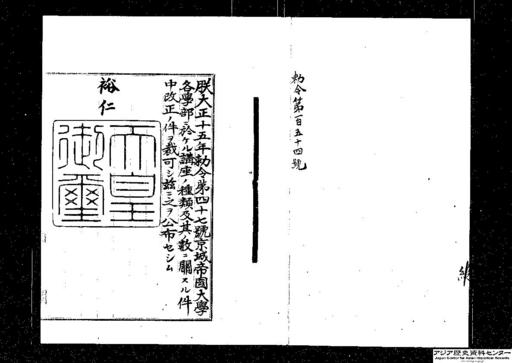 勅令第百五十四號
朕大正十五年勅令第四十七號京城帝國大學
各學部ニ於ケル講座ノ種類及其ノ數ニ關スル件
中改正ノ件ヲ裁可シ茲ニ之ヲ公布セシム
裕仁
天皇
御璽
アジア歴史資料センター
Japan Center for Asian Historical Records